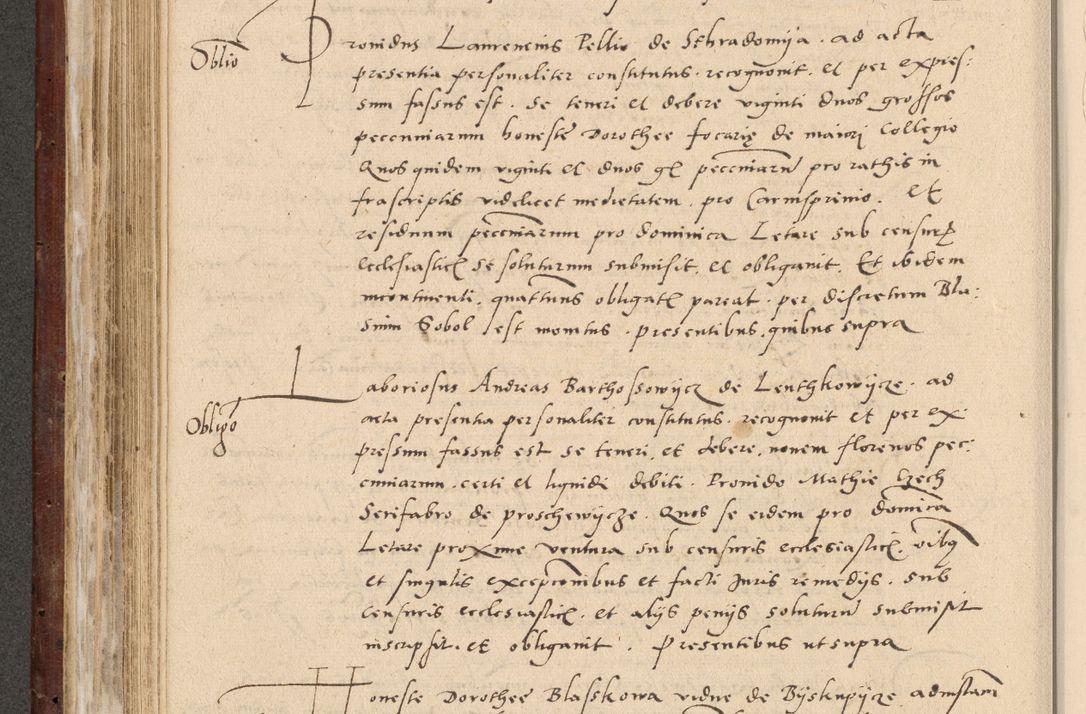 Oblio
Providus Laurencius Pellio de Sthradomija . ad acta
presentia personaliter constitutus . recognovit . et per expres:
sum fassus est . Se teneri et debere viginti duos grossos
pecuniarum honeste Dorothee focarię de maiorj Collegio
Quos quidem viginti et duos gł pecuniarū pro rathis in
frascriptis videlicet medietatem . pro Carnisprivio . Et
residuum pecuniarum pro dominica Letare sub censuris
ecclesiasticis se soluturum submisit . et obligavit . Et ibidem
incontinenti . quattuns obligate pareat . per discretum Bla:
sium Sobol est monitus . presentibus quibus supra
Obligo
Laboriosus Andreas Barthossowijcz de Lenthkowijcze . ad
acta presentia personaliter constitutus . recognovit et per ex:
pressum fassus est se teneri . et debere . novem florenos pec:
cuniarum . certi et liquidi debiti . Provido Mathie Czech
Serifabro de proschewijcze . Quos se eidem pro dominica
Letare proxime ventura sub censuris ecclesiasticis . oibus
et singulis excepcionibus et facti Juris remedijs . sub
Censuris ecclesiasticis . et alijs penijs soluturū submisit
inscripsit . et obligavit . Presentibus ut supra
Honeste Dorothee Blasskowa vidue de Bijskupijcze ad instanciam